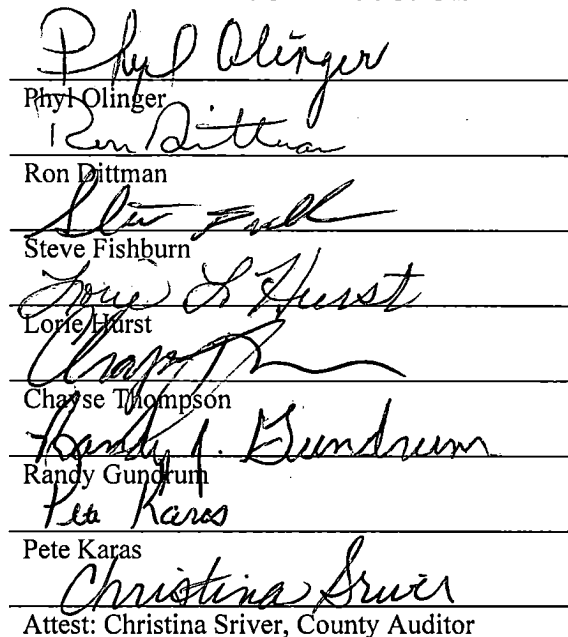 Phyl Olinger
Phyl Olinger
Ron Dittman
Ron Dittman
Steve
Steve Fishburn
Lorie L Hurst
Lorie Hurst
Chayse Thompson
Randy J. Gundrum
Randy Gundrum
Pete Karas
Pete Karas
Christina Sriver
Attest: Christina Sriver, County Auditor